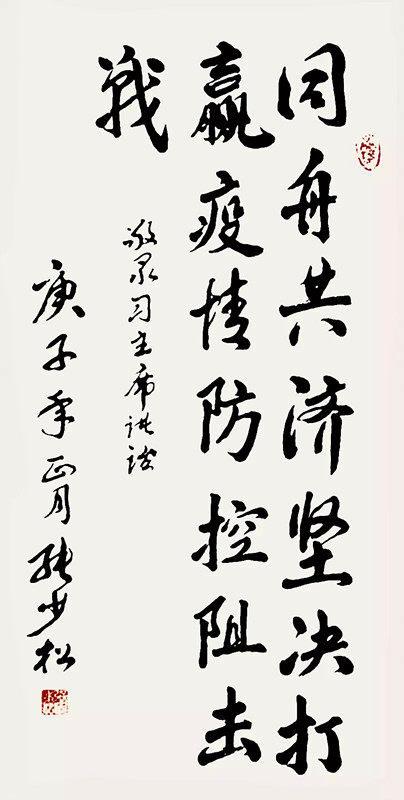 同舟共济坚决打
赢疫情防控阻击
战
敬录习主席讲话
庚子年正月張少松